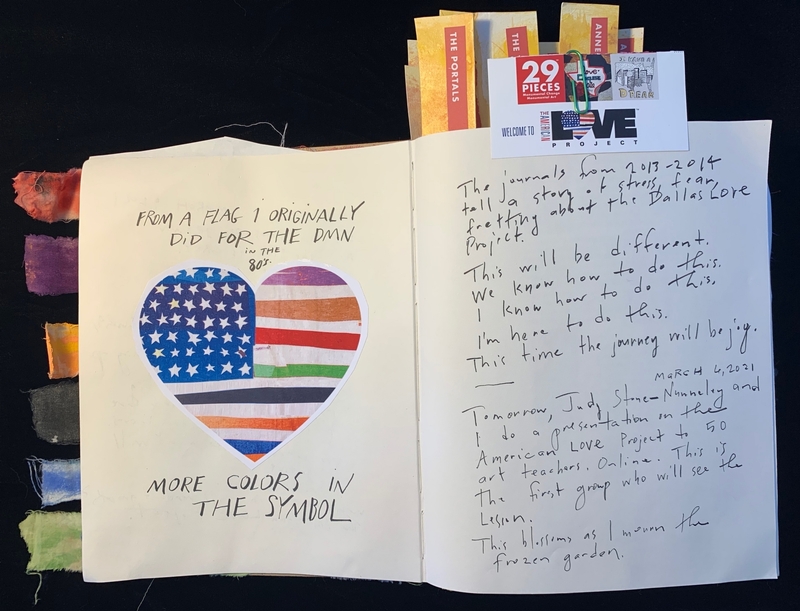 FROM A FLAG I ORIGINALLY
DID FOR THE DMN
IN THE
80's.
MORE COLORS IN
THE SYMBOL
THE PORTALS
THE
ANNE
A
29
PIECES
Monumental Change
Monumental Art
WELCOME TO
THE AMERICAN
LOVE
PROJECT
The journals from 2013-2014
tell a story of stress, fear,
fretting about the Dallas Love
Project.
This will be different.
We know how to do this.
I know how to do this.
I'm here to do this.
This time the journey will be joy.
MARCH 6, 2021
Tomorrow, Judy Stone-Nunneley and
I do a presentation on the
American Love Project to 50
art teachers. Online. This is
the first group who will see the
Lesson.
This blossoms as I mourn the
frozen garden.